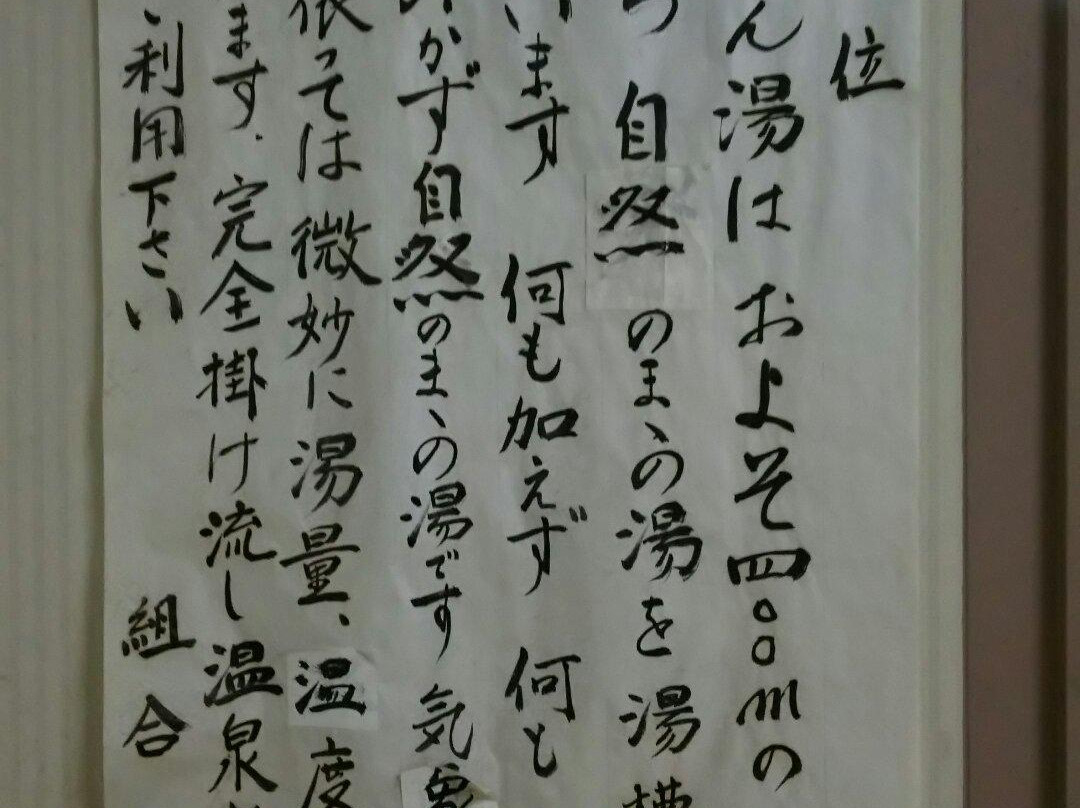 位
ん湯は およそ四〇〇mの
つ 自然のまゝの湯を湯槽
います 何も加えず 何も
かず自然のまゝの湯です 気象
依っては微妙に湯量、温度
ます. 完全掛け流し温泉
利用下さい 組合